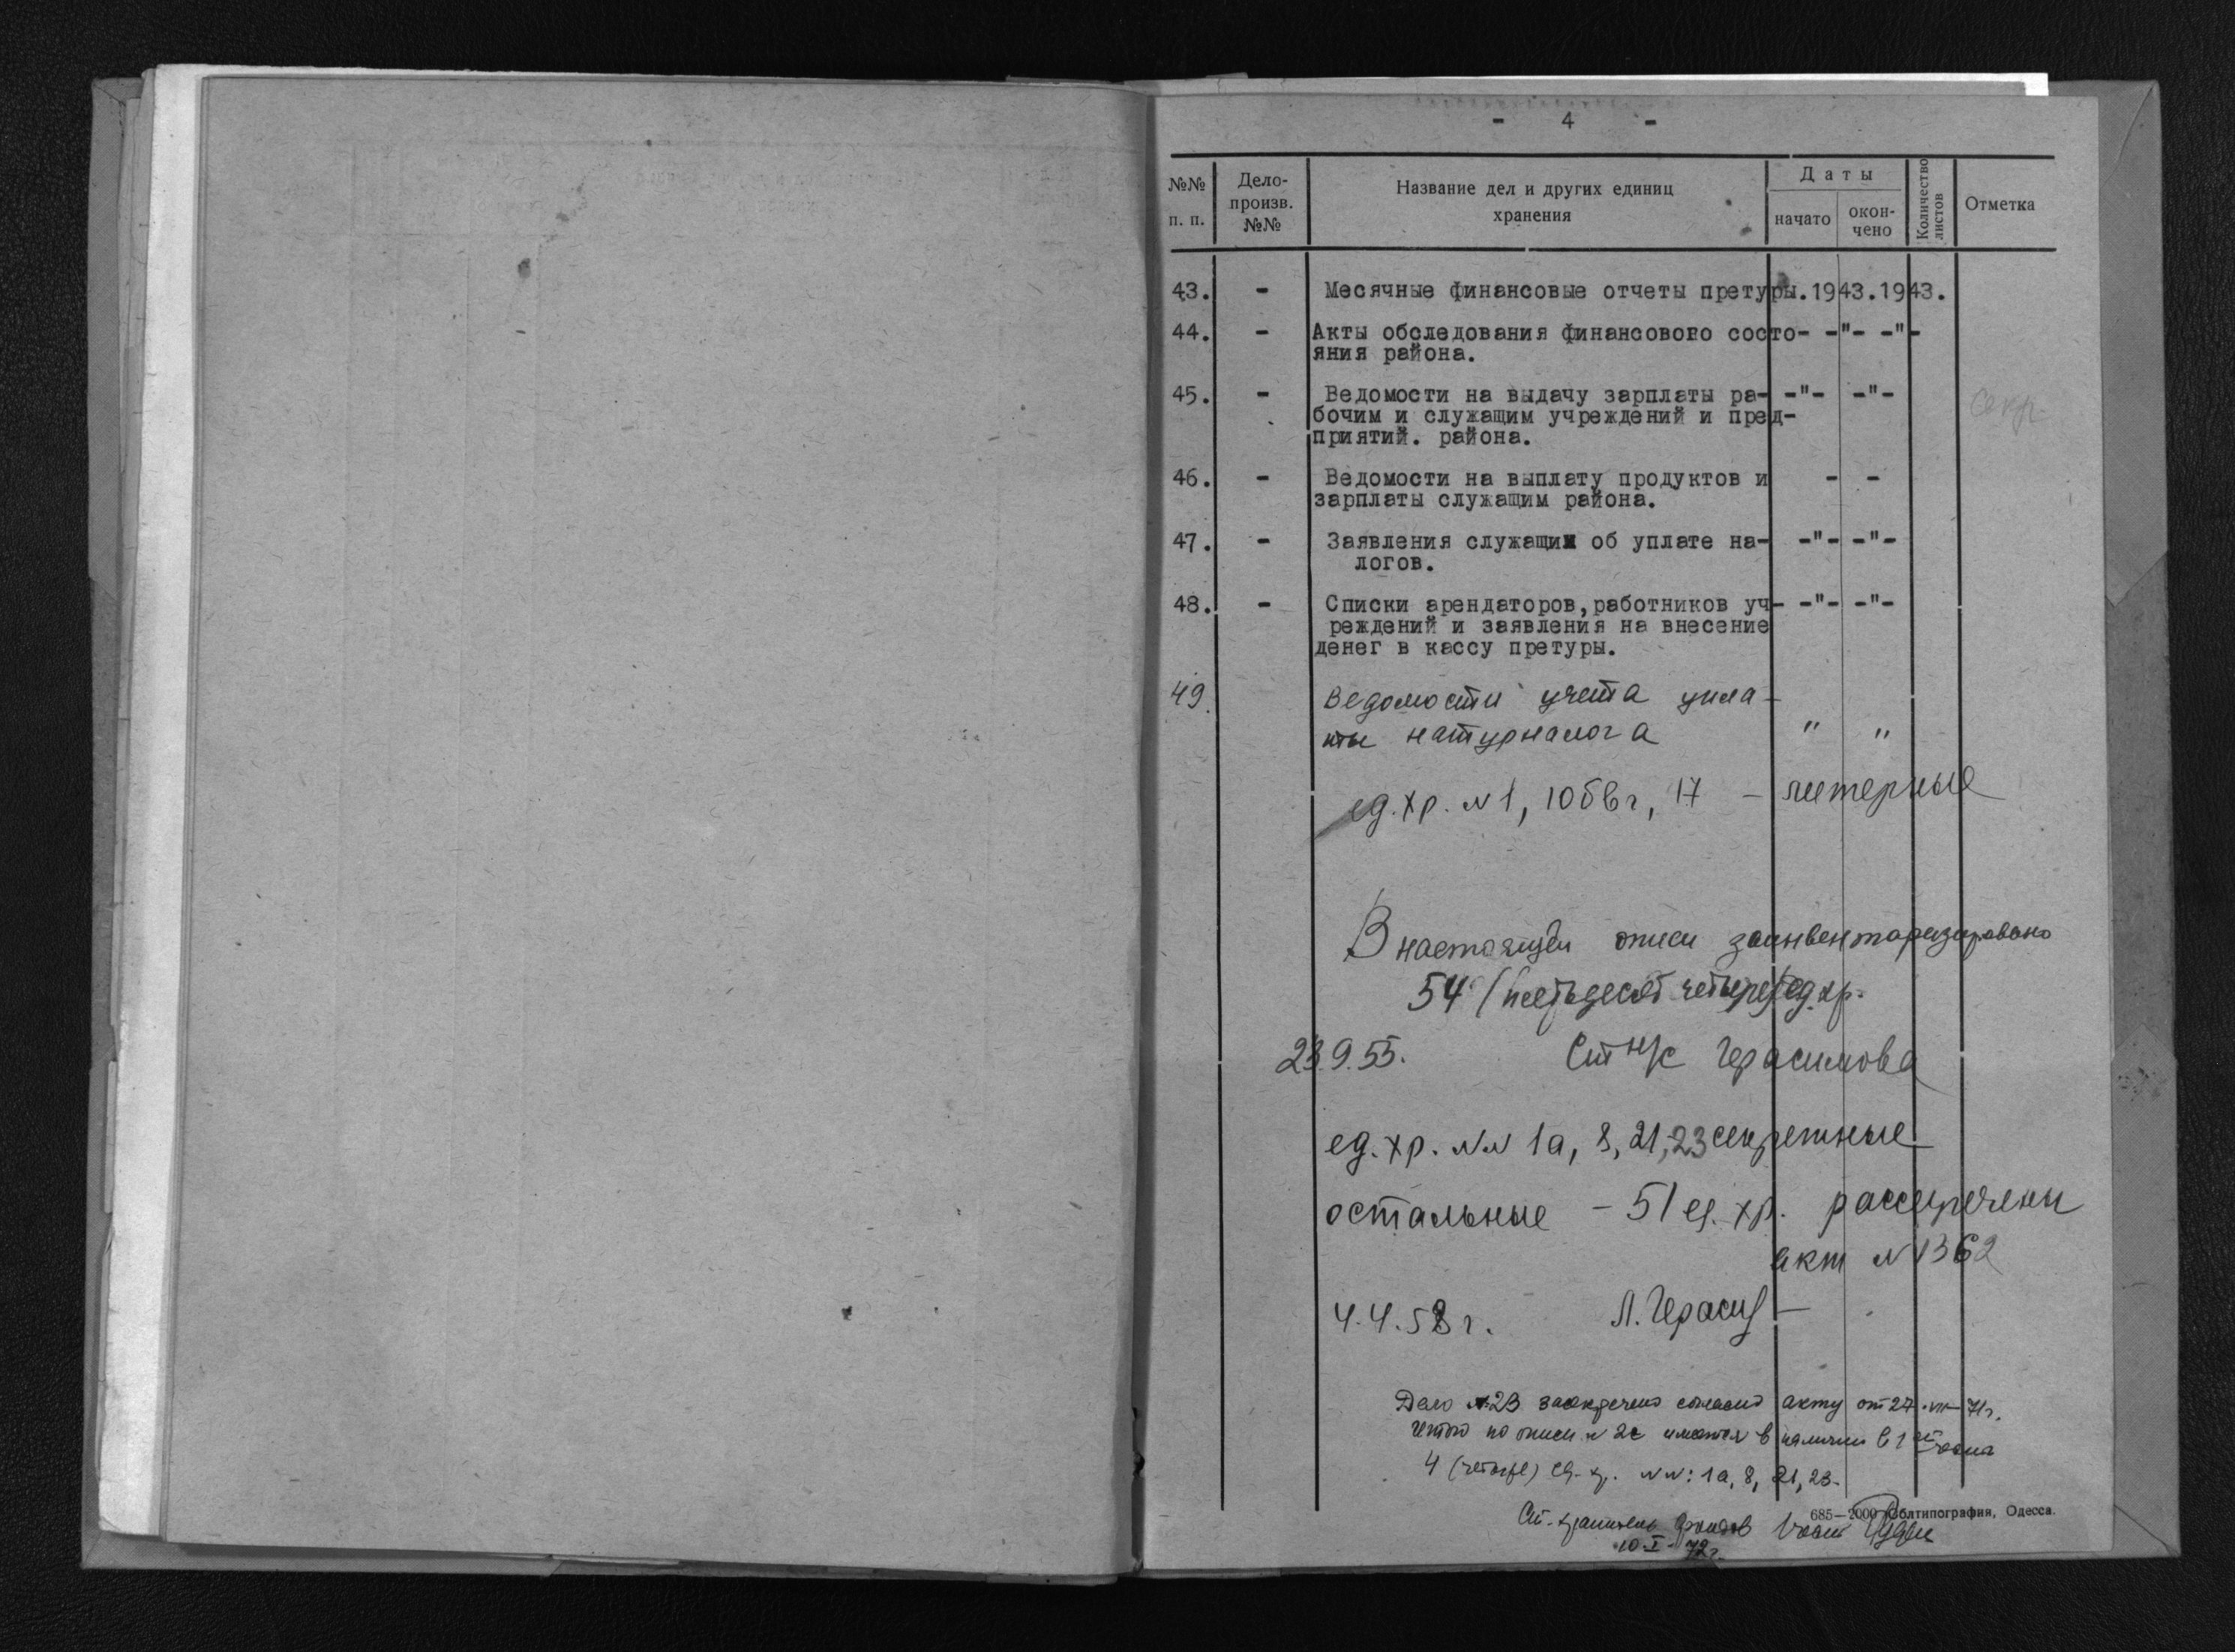 - 4 -
№№ п. п.
Дело-
произв.
№№
Название дел и других единиц
хранения
Даты
начато
окон-
чено
Количество
листов
Отметка
43. - Месячные финансовые отчеты претуры.1943.1943.
44. - Акты обследования финансового состо- -"- -"-
яния района.
45. - Ведомости на выдачу зарплаты ра- -"- -"- секр.
бочим и служащим учреждений и пред-
приятий. района.
46. - Ведомости на выплату продуктов и - -
зарплаты служащим района.
47. - Заявления служащих об уплате на- -"- -"-
логов.
48. - Списки арендаторов,работников уч- -"- -"-
реждений и заявления на внесение
денег в кассу претуры.
49. Ведомости учета упла-
ты натурналога " "
ед. хр. №1, 10бвг, 17 - литерные
В настоящей описи заинвентаризировано
54 (пятьдесят четыре) ед. хр.
23.9.55. Ст н/с Герасимова
ед. хр. №№ 1а, 8, 21, 23 секретные
остальные - 51 ед. хр. рассекречены
акт №1362
4.4.58г. Л. Герасим
Дело №23 засекречено согласно акту от 27.VII-71г.
Итого по описи № 2с имеется в наличии в 1
4 (четыре) ед. хр. №№: 1а, 8, 21, 23.
685—2000 Облтипография, Одесса.
Ст. хранитель фондов
10-I-72г.